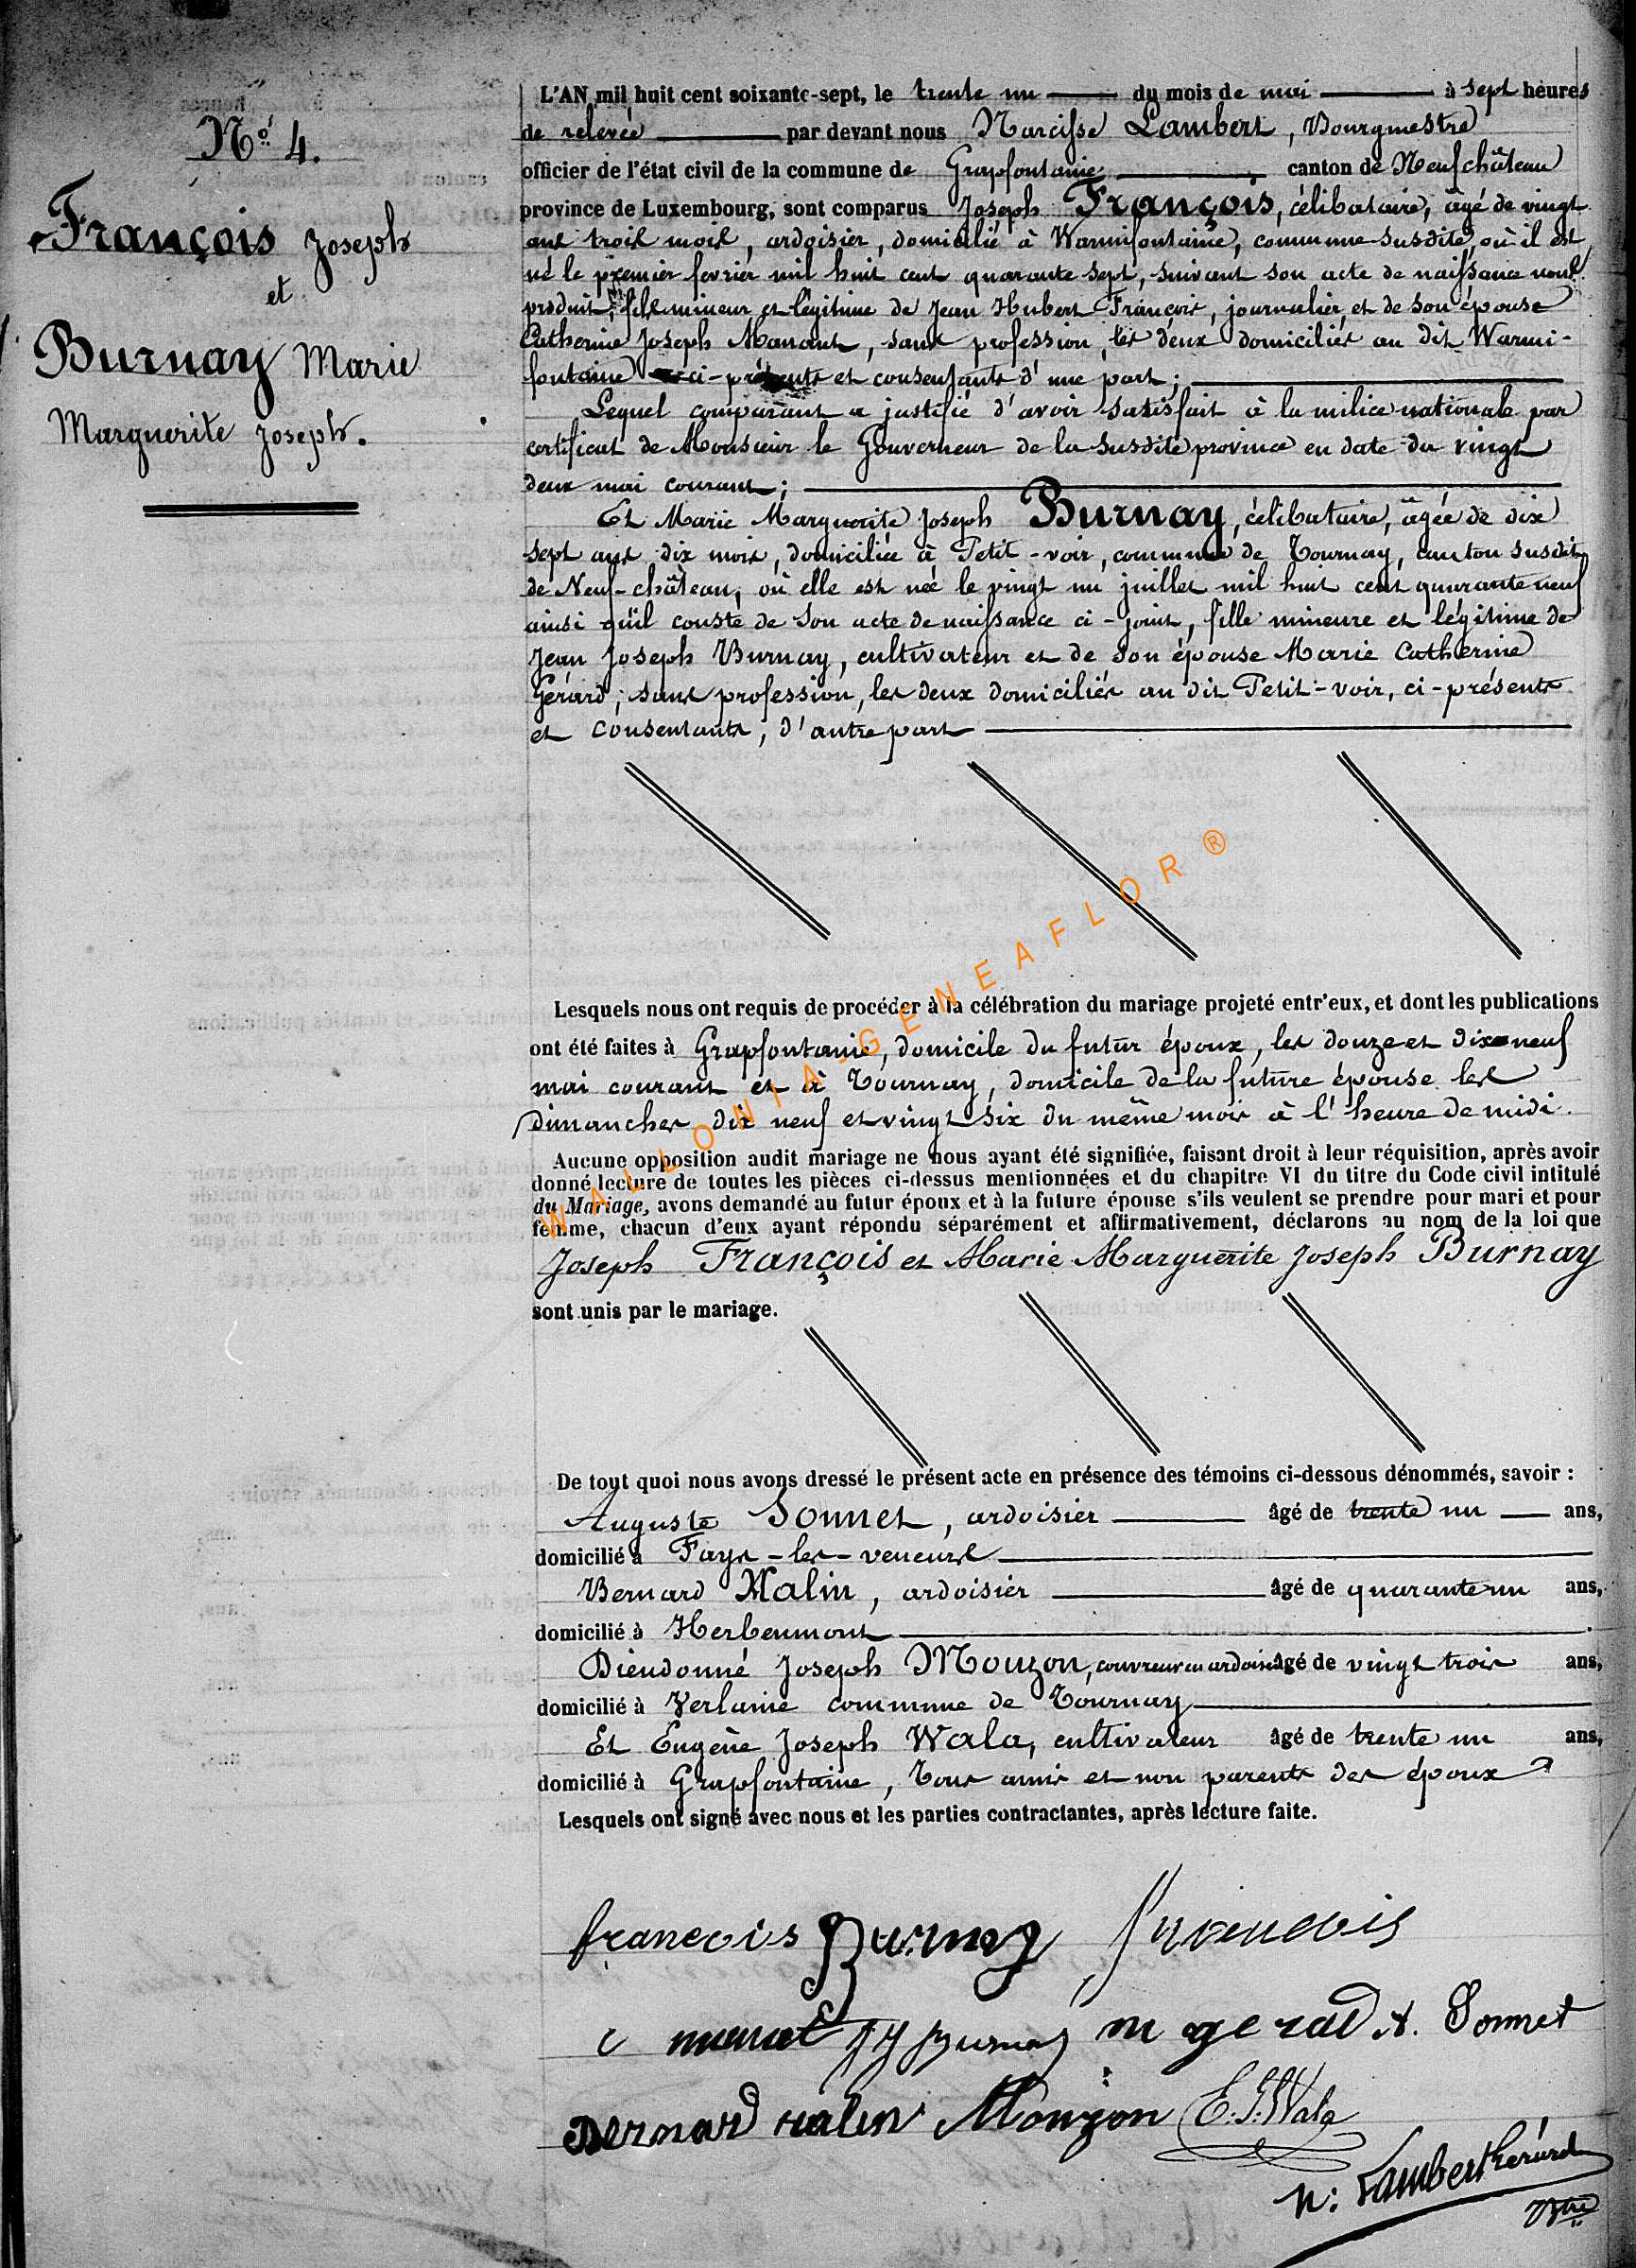 N° 4.
François Joseph
et
Burnay Marie
Marguerite Joseph.
L'AN mil huit cent soixante-sept, le trente un du mois de mai à sept heures
de relevée par devant nous Narcisse Lambert, Bourgmestre
officier de l'état civil de la commune de Grapfontaine canton de Neufchâteau
province de Luxembourg, sont comparus Joseph François, célibataire, âgé de vingt
ans trois mois, ardoisier, domicilié à Warmifontaine, commune susdite, où il est
né le premier fevrier mil huit cent quarante sept, suivant son acte de naissance nous
produit, fils mineur et légitime de Jean Hubert François, journalier et de son épouse
Catherine Joseph Manant, sans profession, les deux domiciliés au dit Warmi-
fontaine ci-présents et consentants d'une part;
Lequel comparant a justifié d'avoir satisfait à la milice nationale par
certificat de Monsieur le Gouverneur de la susdite province en date du vingt
deux mai courant;
Et Marie Marguerite Joseph Burnay, célibataire, âgée de dix
sept ans dix mois, domiciliée à Petit-voir, commune de Tournay, canton susdit
de Neuf-château, où elle est née le vingt un juillet mil huit cent quarante neuf
ainsi qu'il conste de son acte de naissance ci-joint, fille mineure et légitime de
Jean Joseph Burnay, cultivateur et de son épouse Marie Catherine
Gérard, sans profession, les deux domiciliés au dit Petit-voir, ci-présents
et consentants, d'autre part
Lesquels nous ont requis de procéder à la célébration du mariage projeté entr'eux, et dont les publications
ont été faites à Grapfontaine, domicile du futur époux, les douze et dix neuf
mai courant et à Tournay, domicile de la future épouse les
dimanches dix neuf et vingt six du même mois à l'heure de midi.
Aucune opposition audit mariage ne nous ayant été signifiée, faisant droit à leur réquisition, après avoir
donné lecture de toutes les pièces ci-dessus mentionnées et du chapitre VI du titre du Code civil intitulé
du Mariage, avons demandé au futur époux et à la future épouse s'ils veulent se prendre pour mari et pour
femme, chacun d'eux ayant répondu séparément et affirmativement, déclarons au nom de la loi que
Joseph François et Marie Marguerite Joseph Burnay
sont unis par le mariage.
De tout quoi nous avons dressé le présent acte en présence des témoins ci-dessous dénommés, savoir :
Auguste Sonnet, ardoisier âgé de trente un ans,
domicilié à Fays-les-veneurs
Bernard Halin, ardoisier âgé de quarante un ans,
domicilié à Herbeumont
Dieudonné Joseph Mouzon, couvreur en ardoises âgé de vingt trois ans,
domicilié à Verlaine commune de Tournay
Et Eugène Joseph Wala, cultivateur âgé de trente un ans,
domicilié à Grapfontaine, tous amis et non parents des époux
Lesquels ont signé avec nous et les parties contractantes, après lecture faite.
francois Burnay francois
c manat JJ Burnay m gerard A. Sonnet
Bernard halin Mouzon E.J. Wala
N: Lambert Gérard
Btre
WALLONIA-GENEAFLOR ®